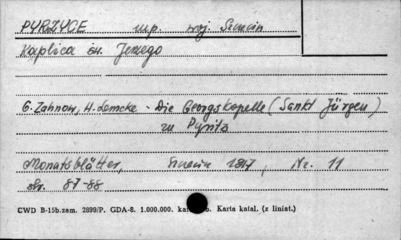 PYRZYCE woj. Szczecin
Kaplica św. Jerzego
G. Zahnow, H. Lemcke - Die Georgskapelle (Sankt Jürgen)
zu Pyritz
Monatsblätter, 1897, Nr. 11
str. 87-88
CWD B-15b.zam. 2899/P. GDA-8. 1.000.000. Karta katal. (z liniat.)